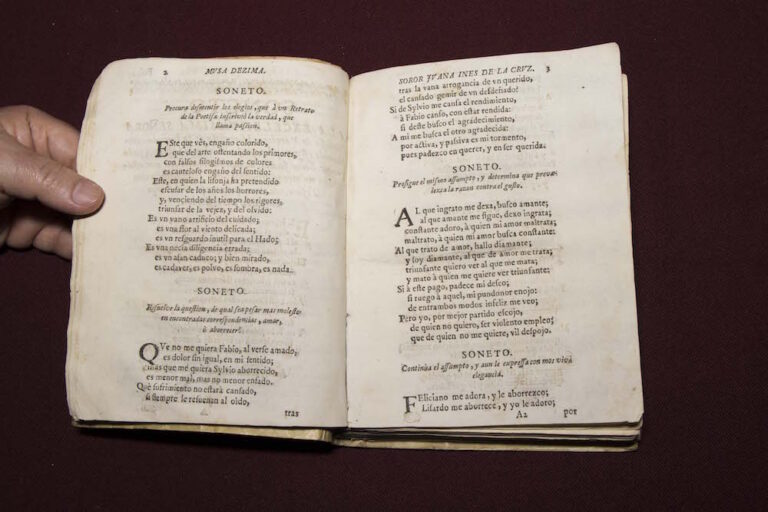 2 MVSA DEZIMA.
SONETO.
Procura desmentir los elogios, que à vn Retrato
de la Poetisa inscribiò la verdad, que
llama passion.
Este que vès, engaño colorido,
que del arte ostentando los primores,
con falsos silogismos de colores
es cauteloso engaño del sentido:
Este, en quien la lisonja ha pretendido
escusar de los años los horrores,
y, venciendo del tiempo los rigores,
triunfar de la vejez, y del olvido:
Es vn vano artificio del cuidado;
es vna flor al viento delicada;
es vn resguardo inutil para el Hado;
Es vna necia diligencia errada;
es vn afan caduco; y bien mirado,
es cadaver, es polvo, es sombra, es nada.
SONETO.
Resuelve la question, de qual sea pesar mas molesto
en encontradas correspondencias, amar,
ò aborrecer?
QVe no me quiera Fabio, al verse amado,
es dolor sin igual, en mi sentido;
mas que me quiera Sylvio aborrecido,
es menor mal, mas no menor enfado.
Què sufrimiento no estarà cansado,
si siempre le resuenan al oìdo,
tras
SOROR JVANA INES DE LA CRVZ. 3
tras la vana arrogancia de vn querido,
el cansado gemir de vn desdeñado?
Si de Sylvio me cansa el rendimiento,
à Fabio canso, con estar rendida:
si deste busco el agradecimiento,
A mi me busca el otro agradecida:
por activa, y passiva es mi tormento,
pues padezco en querer, y en ser querida.
SONETO.
Prosigue el mismo assumpto, y determina que preva-
lezca la razon contra el gusto.
AL que ingrato me dexa, busco amante;
al que amante me sigue, dexo ingrata;
constante adoro, à quien mi amor maltrata;
maltrato, à quien mi amor busca constante:
Al que trato de amor, hallo diamante;
y soy diamante, al que de amor me trata;
triunfante quiero ver al que me mata;
y mato à quien me quiere ver triunfante:
Si à este pago, padece mi deseo;
si ruego à aquel, mi pundonor enojo:
de entrambos modos infeliz me veo;
Pero yo, por mejor partido escojo,
de quien no quiero, ser violento empleo;
que de quien no me quiere, vil despojo.
SONETO.
Continùa el assumpto, y aun le expressa con mas viva
elegancia.
FEliciano me adora, y le aborrezco;
Lisardo me aborrece, y yo le adoro;
A2 por